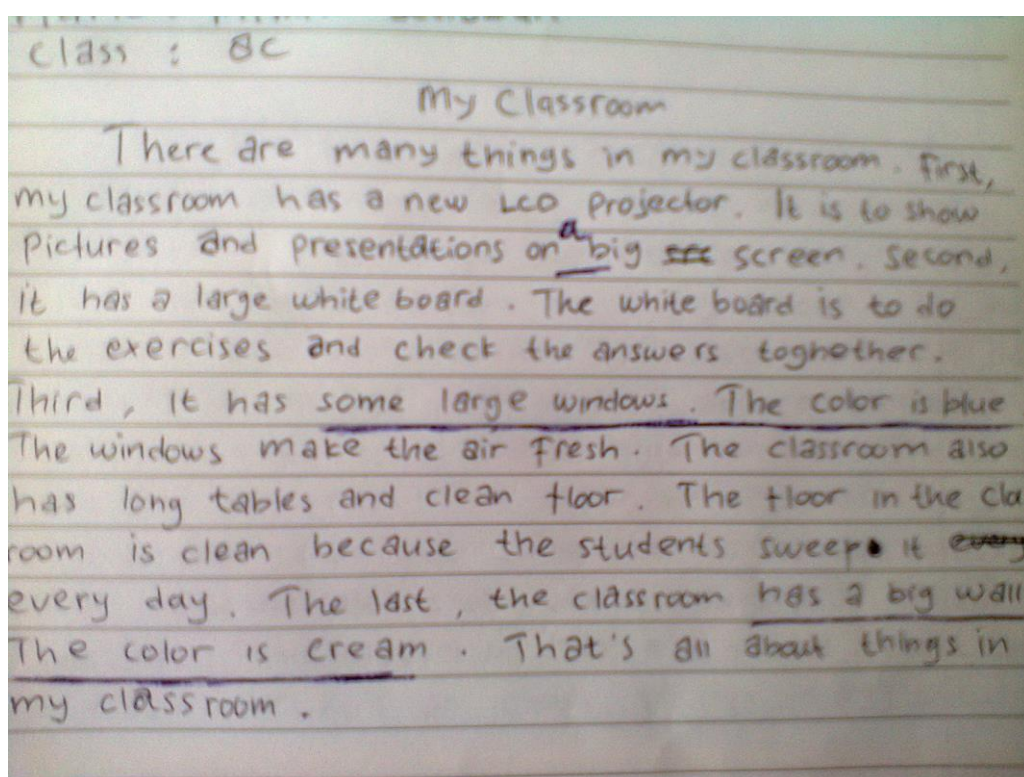 Class : 8C
My Classroom
There are many things in my classroom. First,
my classroom has a new LCD projector. It is to show
pictures and presentations on a big screen. Second,
it has a large white board. The white board is to do
the exercises and check the answers toghether.
Third, it has some large windows. The color is blue
The windows make the air fresh. The classroom also
has long tables and clean floor. The floor in the cla
room is clean because the students sweep it every
every day. The last, the classroom has a big wall
The color is cream. That's all about things in
my classroom.